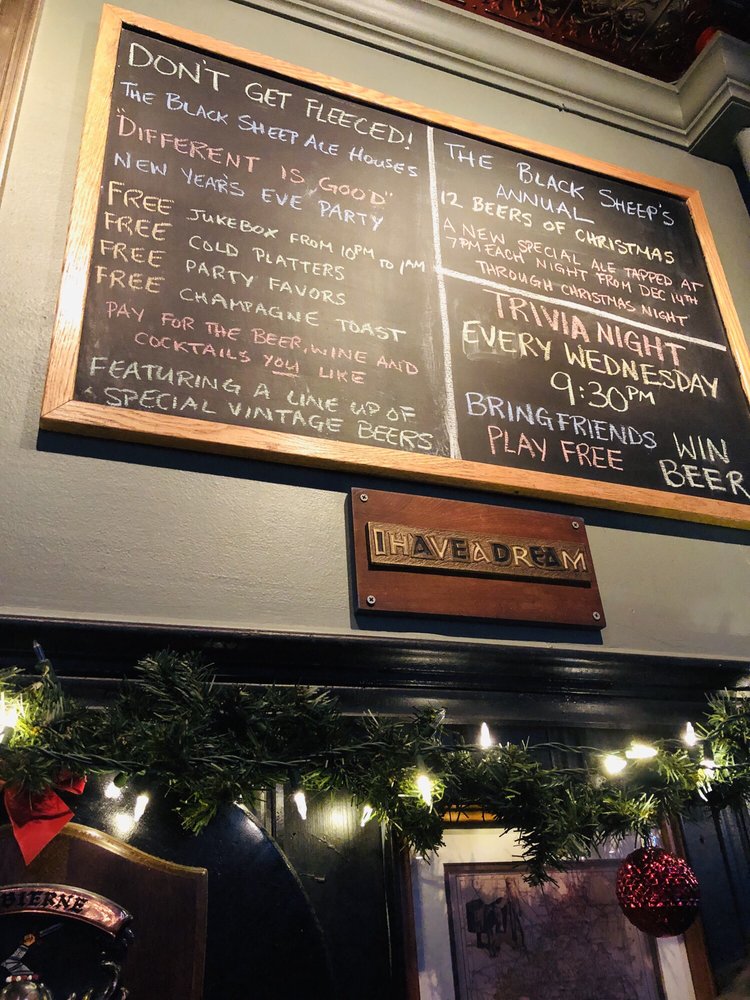 DON'T GET FLEECED!
THE BLACK SHEEP ALE HOUSES
"DIFFERENT IS GOOD"
NEW YEAR'S EVE PARTY
FREE JUKEBOX FROM 10PM TO 1AM
FREE COLD PLATTERS
FREE PARTY FAVORS
FREE CHAMPAGNE TOAST
PAY FOR THE BEER, WINE AND
COCKTAILS YOU LIKE
FEATURING A LINE UP OF
SPECIAL VINTAGE BEERS
THE BLACK SHEEP'S
ANNUAL
12 BEERS OF CHRISTMAS
A NEW SPECIAL ALE TAPPED AT
7PM EACH NIGHT FROM DEC 14TH
THROUGH CHRISTMAS NIGHT
TRIVIA NIGHT
EVERY WEDNESDAY
9:30PM
BRING FRIENDS
PLAY FREE
WIN
BEER
I HAVE A DREAM
BIERNE